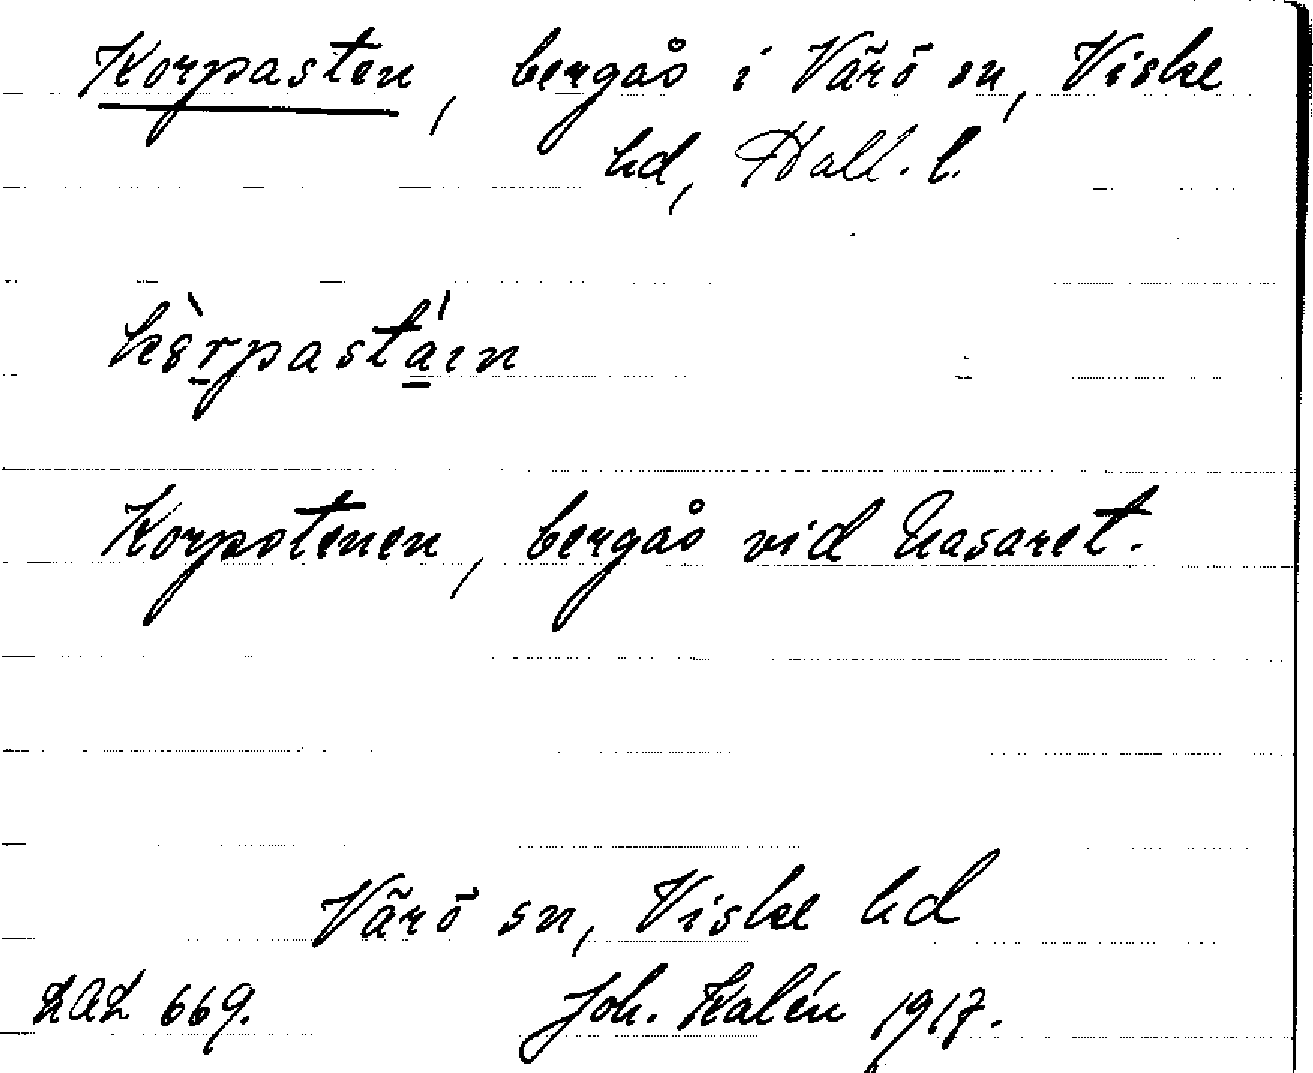 Korpasten, bergås i Värö sn, Viske
hd, Hall. l.
Korpstenen, bergås vid Nasaret.
Värö sn, Viske hd
LAL 669.
Joh. Kalén 1917.